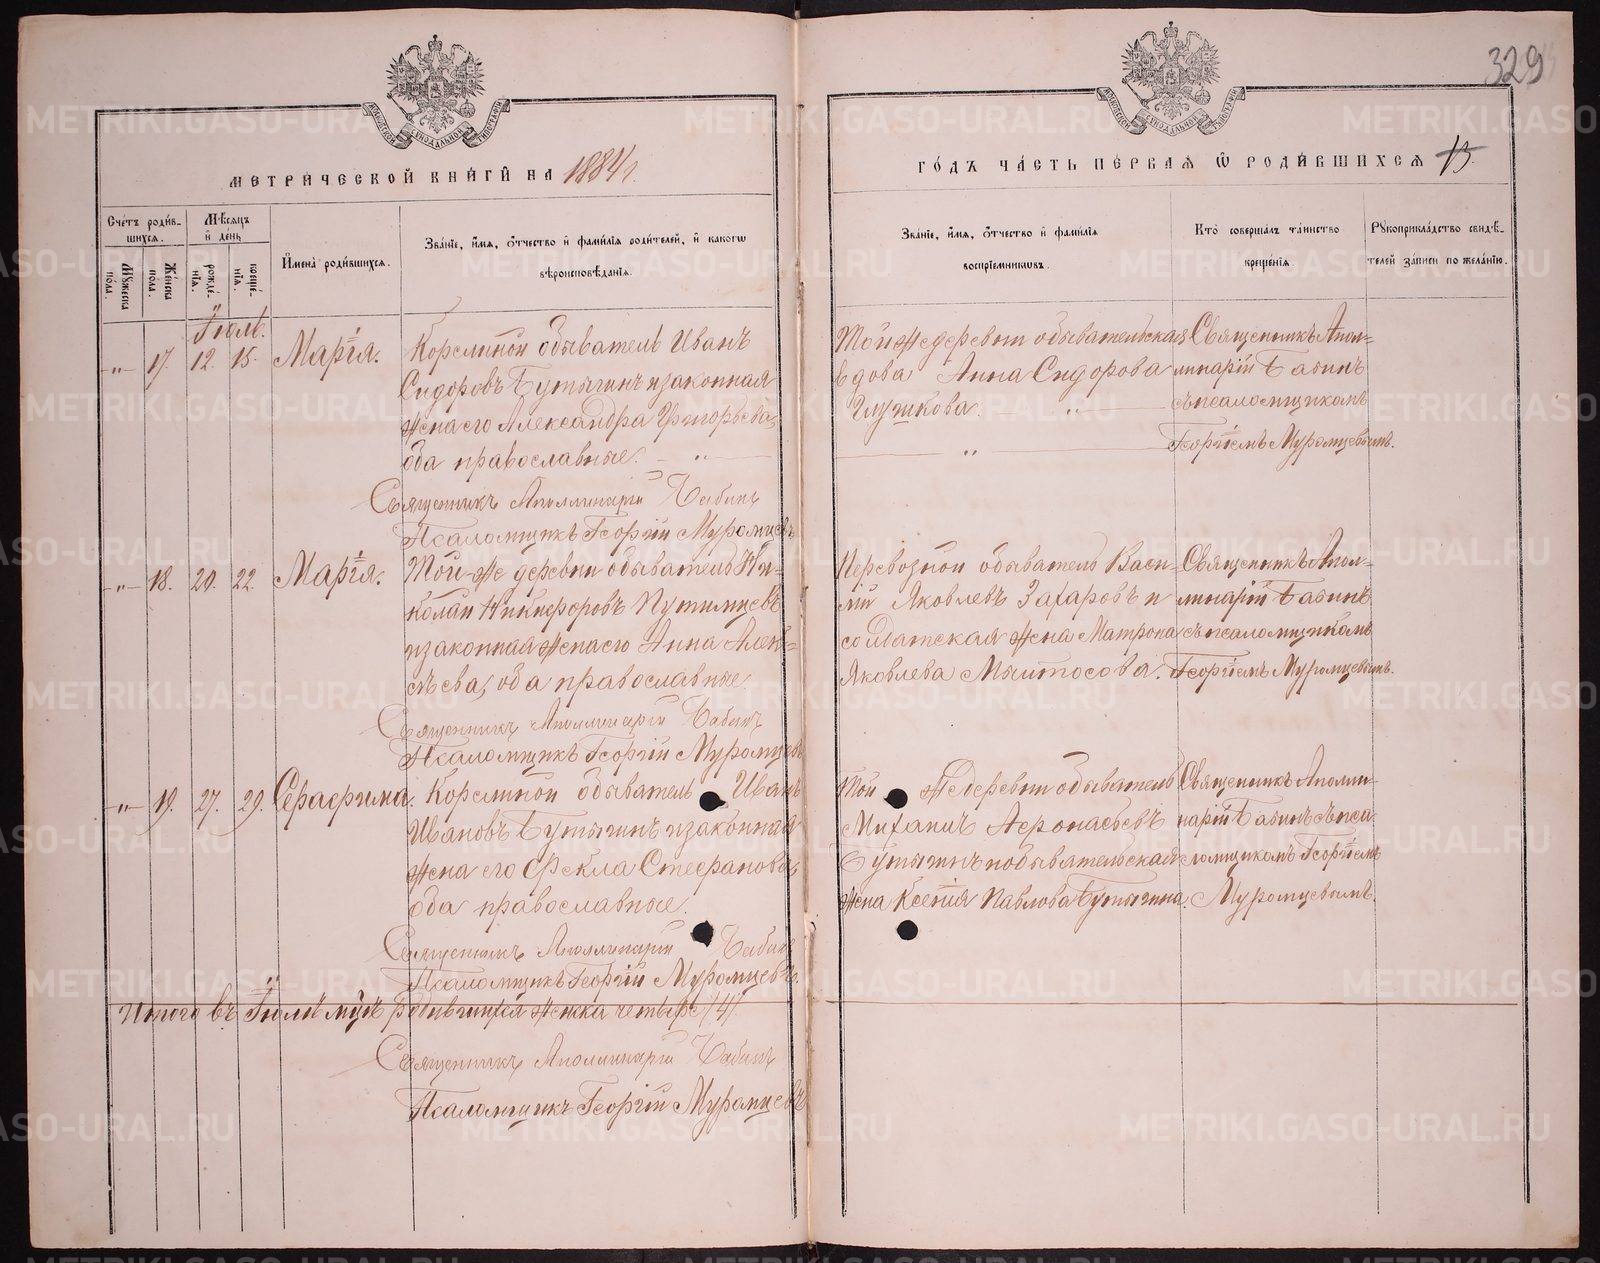 329
МОСКОВСКОЙ СѴНОДАЛЬНОЙ ТИПОГРАФІИ
МОСКОВСКОЙ СѴНОДАЛЬНОЙ ТИПОГРАФІИ
МЕТРИЧЕСКОЙ КНИГИ НА 1884 г.
ГОДЪ ЧАСТЬ ПЕРВАЯ Ѡ РОДИВШИХСЯ 13.
Счетъ родив-
шихся.
Мѣсяцъ
и день
Мужеска пола.
Женска пола.
рожде-нія.
креще-нія.
Имена родившихся.
Званіе, имя, отчество и фамилія родителей, и какогѡ
вѣроисповѣданія.
Званіе, имя, отчество и фамилія
воспріемниковъ.
Кто совершалъ таинство
крещенія.
Рукоприкладство свидѣ-
телей записи по желанію.
Іюль.
-„- 17. 12. 15. Марія.
Корелиной обыватель Иванъ
Сидоровъ Бутыгинъ и законная
жена его Александра Григорьева,
оба православные. „
Священникъ Аполлинарій Бабинъ
Псаломщикъ Георгій Муромцевъ
Той же деревни обывательская
вдова Анна Сидорова
Глушкова. „
„
Священникъ Апол-
линарій Бабинъ
съ псаломщикомъ
Георгіемъ Муромцевымъ.
-„- 18. 20. 22. Марія.
Той-же деревни обыватель Ни-
колай Никифоровъ Путимцевъ
и законная жена его Анна Алек-
сѣева, оба православные.
Священникъ Аполлинарій Бабинъ
Псаломщикъ Георгій Муромцевъ
Перевозной обыватель Васи-
лій Яковлевъ Захаровъ и
солдатская жена Матрона
Яковлева
Священникъ Апол-
линарій Бабинъ
съ псаломщикомъ
Георгіемъ Муромцевымъ.
-„- 19. 27. 29. Серафима.
Корелиной обыватель Иванъ
Ивановъ Бутыгинъ и законная
жена его Фекла Стефанова,
оба православные.
Священникъ Аполлинарій Бабинъ
Псаломщикъ Георгій Муромцевъ.
Той же деревни обыватель
Михаилъ Афонасьевъ
Бутыгинъ и обывательская
жена Ксенія Павлова Бутыгина.
Священникъ Аполли-
нарій Бабинъ съ пса-
ломщикомъ Георгіемъ
Муромцевымъ.
Итого въ Іюлѣ мцѣ родившихся женска четыре /4/.
Священникъ Аполлинарій Бабинъ
Псаломщикъ Георгій Муромцевъ
METRIKI.GASO-URAL.RU